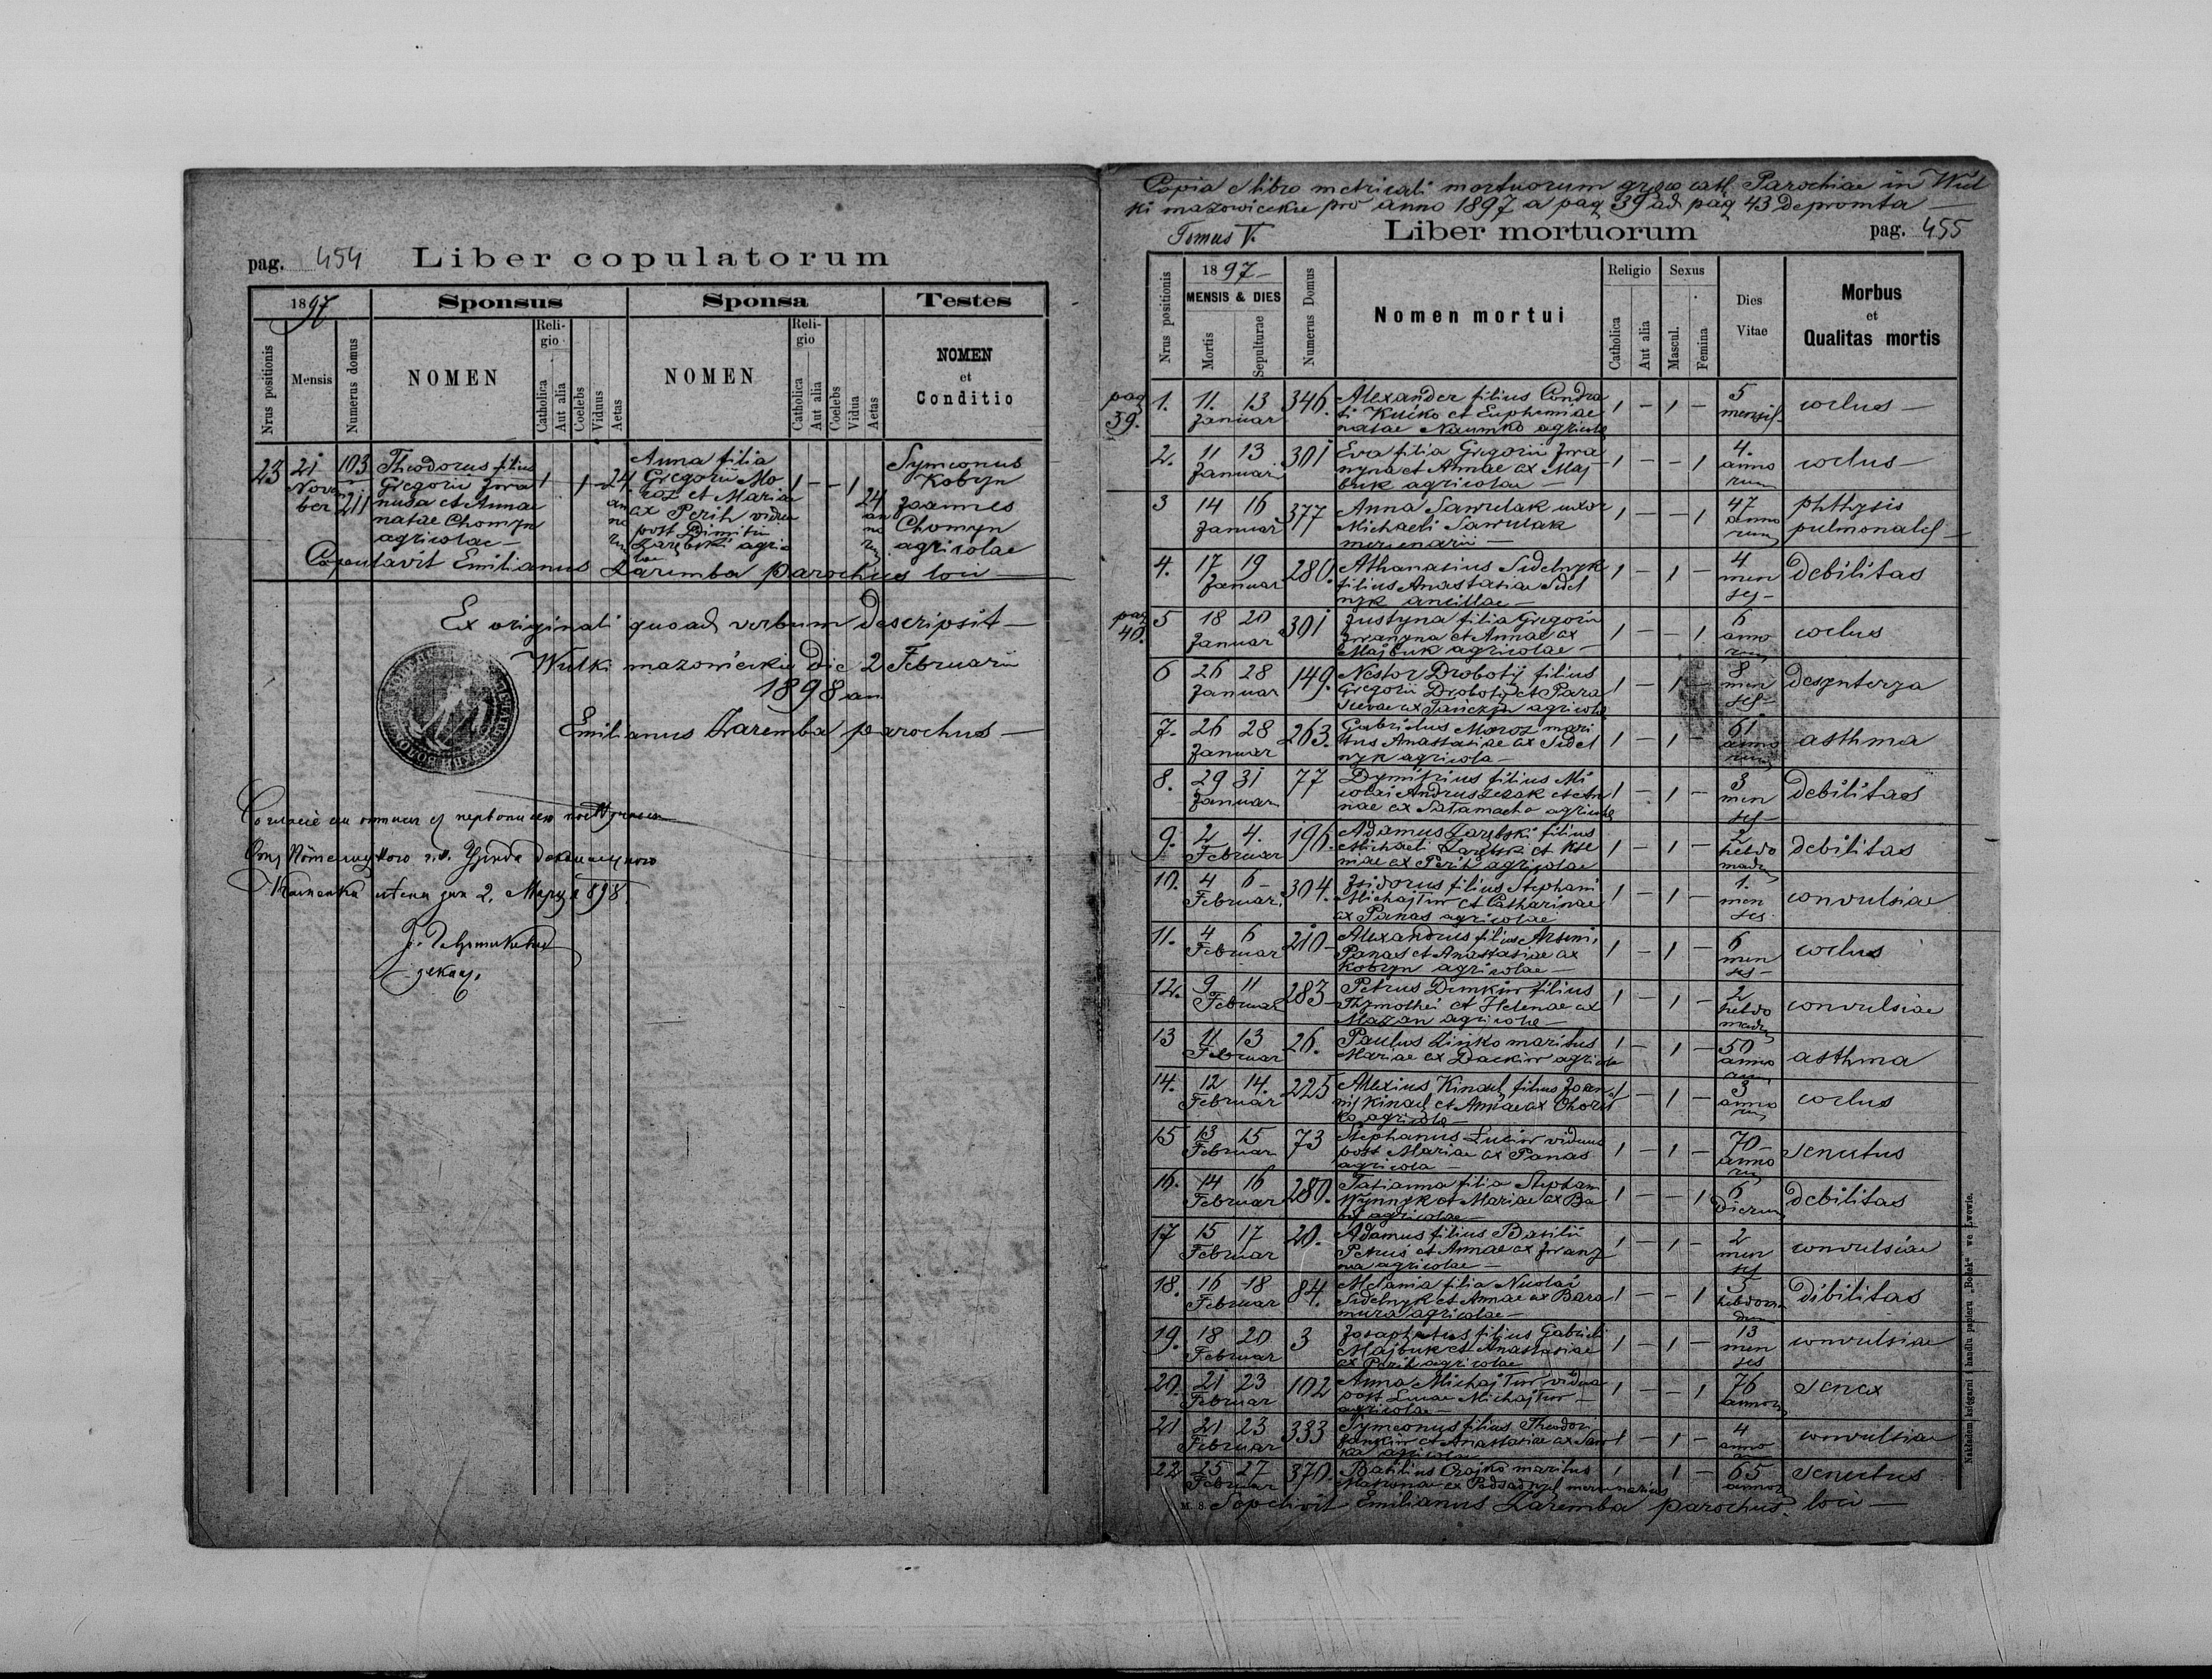 pag. 454 Liber copulatorum
1897 Sponsus Sponsa Testes
Nrus positionis Mensis Numerus domus NOMEN Religio Catholica Aut alia Coelebs Viduus Aetas NOMEN Religio Catholica Aut alia Coelebs Vidua Aetas NOMEN et Conditio
23 21 November 103 211
Theodorus filius
Gregorii Iwa
nusa et Annae
natae Chomyn
agricolae —
1 1 - 24 annorum
Anna filia
Gregorii Mo
roz et Mariae
ex Perih vidua
post Dimitrii
Zarębski agrico
lae
1 - - 1 24 annorum
Symeonus
Kobryn
Joannes
Chomyn
agricolae
Copulavit Emilianus Zaremba parochus loci
Ex originali quoad verbum descripsit —
Wulki mazowieckie die 2 Februarii
1898 an
Emilianus Zaremba parochus —
Copia e libro metricali mortuorum graeco cath. Parochiae in Wul
ki mazowieckie pro anno 1897 a pag 39 ad pag 43 depromta —
Tomus V. Liber mortuorum pag. 455
Nrus positionis 1897 MENSIS & DIES Mortis Sepulturae Numerus Domus Nomen mortui Religio Catholica Aut alia Sexus Mascul. Femina Dies Vitae Morbus et Qualitas mortis
pag 39.
1. 11. 13 Januar 346.
Alexander filius Condra
ti Kućko et Euphemiae
natae Naumko agricolae
1 - 1 - 5 menses coclus —
2. 11 13 Januar 301
Eva filia Gregorii Iwa
nyna et Annae ex Maj
buk agricolae —
1 - - 1 4. annorum coclus —
3 14 16 Januar 377
Anna Sawulak uxor
Michaeli Sawulak
mercenarii —
1 - - 1 47 annorum phthysis pulmonales —
4. 17 19 Januar 280.
Athanasius Sidelnyk
filius Anastasiae Sidel
nyk ancillae —
1 - 1 - 4 menses Debilitas
pag 40.
5 18 20 Januar 301
Justyna filia Gregorii
Iwanyna et Annae ex
Majbuk agricolae —
1 - - 1. 6 annorum coclus
6 26 28 Januar 149.
Nestor Drobotij filius
Gregorii Drobotij et Para
scevae ex Tańczyn agricolae
1 - 1 - 8 menses desynterya
7. 26 28 Januar 263.
Gabrielus Moroz mari
tus Anastasiae ex Sidel
nyk agricola —
1 - 1 - 61 annorum asthma
8. 29 31 Januar 77
Dymitrius filius Mi
colai Andruszczak et An
nae ex Pałamacha agricolae
1 - 1 - 3 menses Debilitas
9. 2 4. Februar 196.
Adamus Zarębski filius
Michaeli Zarębski et Kse
niae ex Perih agricolae
1 - 1 - 2 hebdomadum debilitas
10. 4 6 - Februar 304.
Isidorus filius Stephani
Michajłow et Catharinae
ex Panas agricolae
1 - 1 - 1. menses convulsiae
11. 4 6 Februar 210
Alexandrus filius Arseni
Panas et Anastasiae ex
Kobryn agricolae —
1 - 1 - 6 menses coclus
12. 9 11 Februar 283
Petrus Dumkiw filius
Thymothei et Helenae ex
Mazan agricolae —
1 - 1 - 2 hebdomadum convulsiae
13 11 13 Februar 26.
Paulus Zinko maritus
Mariae ex Dackiw agricola
1 - 1 - 50 annorum asthma
14. 12 14. Februar 225
Alexius Kinach filius Joan
nis Kinach et Annae ex Chorit
ko agricola —
1 - 1 - 3 annorum coclus
15 13 15 Februar 73
Stephanus Luciw viduus
post Mariae ex Panas
agricola —
1 - 1 - 70 — annorum senectus
16. 14 16 Februar 280.
Tatianna filia Stephani
Wynnyk et Mariae ex Ba
agricolae —
1 - - 1 6 dierum debilitas
17 15 17 Februar 20.
Adamus filius Basilii
Petrus et Annae ex Iwany
na agricolae —
1 - 1 - 2 menses convulsiae
18. 16 18 Februar 84.
Melania filia Nicolai
Sidelnyk et Annae ex Bara
mura agricolae —
1 - - 1 3 hebdomadum Dibilitas
19. 18 20 Februar 3
Josaphatus filius Gabrieli
Majbuk et Anastasiae
ex Perih agricolae
1 - 1 - 13 menses convulsiae
20. 21 23 Februar 102
Anna Michajłow vidua
post Lucae Michajłow —
agricolae —
1 - - 1 76 annorum senex
21 21 23 Februar 333
Symeonus filius Theodori
Jankiw et Anastasiae ex Saw
ka agricolae
1 - 1 - 4 annorum convulsiae
22 25 27 Februar 370.
Basilius Czajko maritus
ex mercenarius
1 1 - 65 annor senectus
M. 8 Sepelivit Emilianus Zaremba parochus loci —
Nakładem księgarni i handlu papieru „Bodek" we Lwowie.